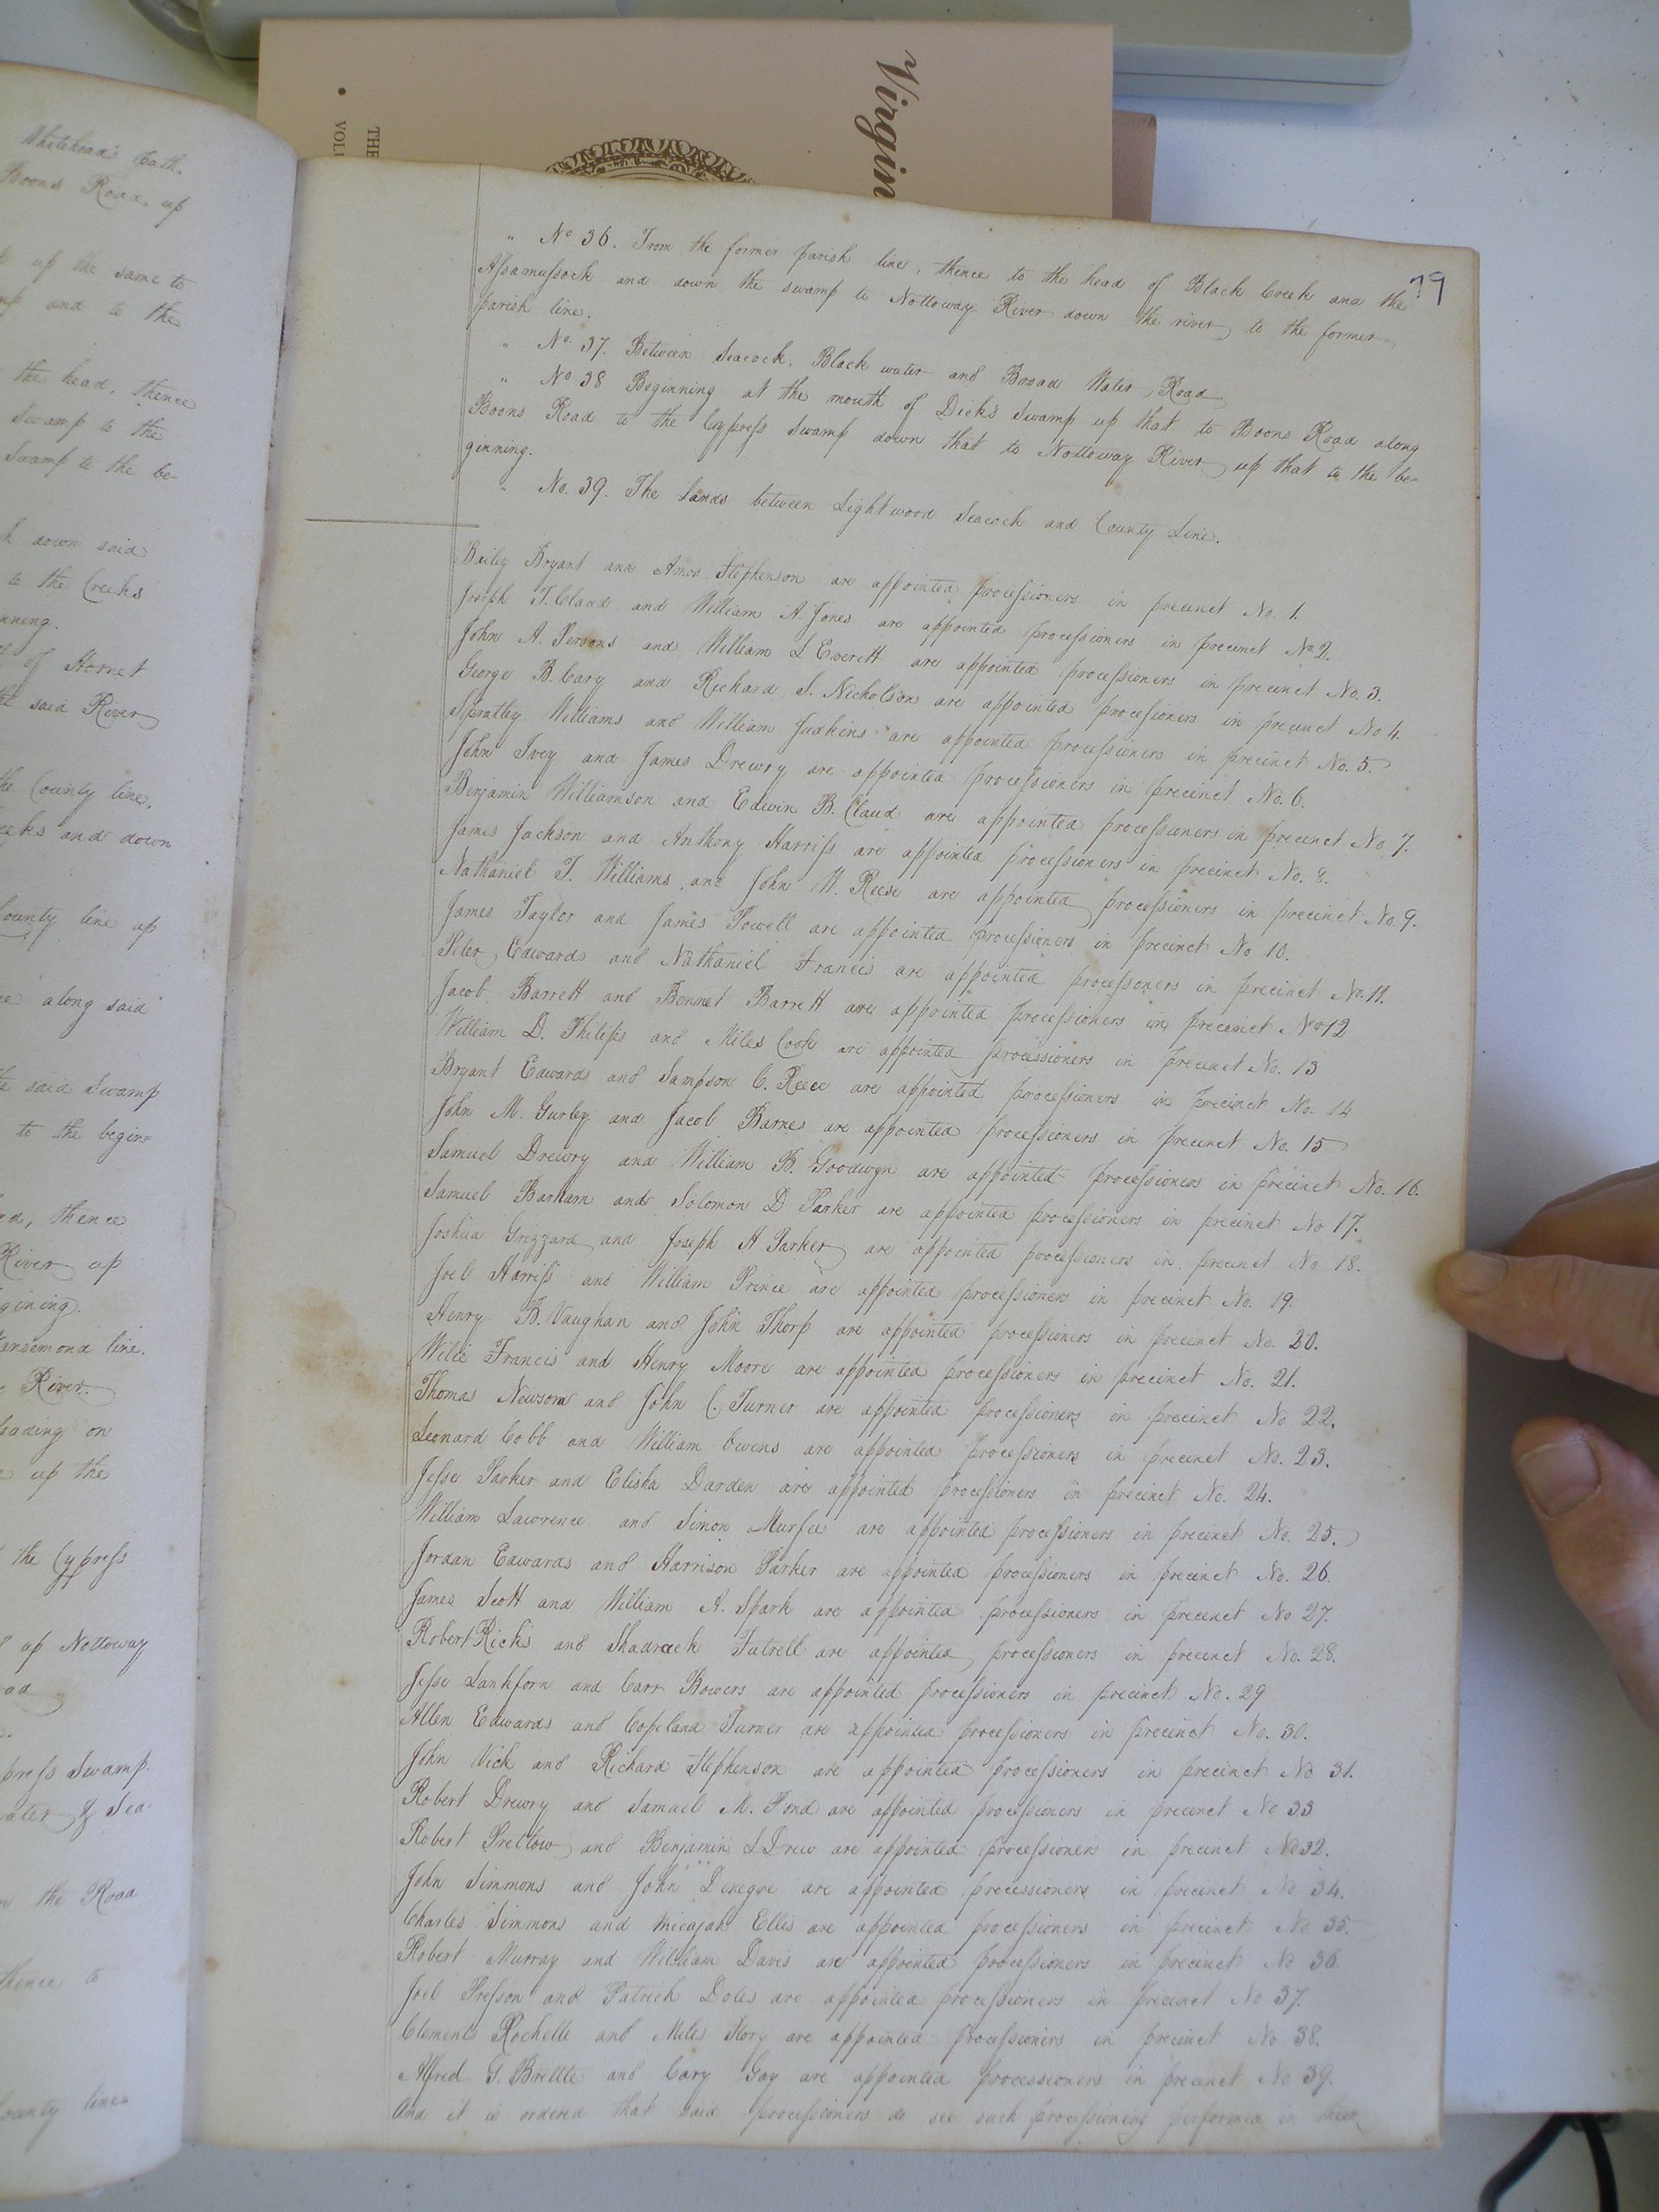 Virgin
THE
VOLU
Whitehead's Path.
Boons Road, up
up the same to
and to the
the head, thence
Swamp to the
Swamp to the be-
down said
to the Creeks
of Hornet
said River
the County line,
and down
County line up
along said
said Swamp
to the begin=
thence
River up
line.
River.
leading on
up the
the Cypress
up Nottoway
Swamp.
the Road
thence to
County line
79
" No 36. From the former parish line, thence to the head of Black Creek and the
Assamussock and down the swamp to Nottoway River down the river to the former
parish line.
" No. 37. Between Seacock, Black water and Broad Water Road
" No 38 Beginning at the mouth of Dicks Swamp up that to Boons Road along
Boons Road to the Cypress Swamp down that to Nottoway River up that to the be-
ginning.
" No. 39. The Lands between Lightwood Seacock and County Line.
Bailey Bryant and Amos Stephenson are appointed processioners in precinct No. 1.
Joseph T. Claud and William A. Jones are appointed processioners in precinct No 2.
John A. Persons and William L Everett are appointed processioners in precinct No. 3.
George B. Cary and Richard S. Nicholson are appointed processioners in precinct No 4.
Spratley Williams and William Judkins are appointed processioners in precinct No. 5.
John Ivey and James Drewry are appointed processioners in precinct No. 6.
Benjamin Williamson and Edwin B. Claud are appointed processioners in precinct No 7.
James Jackson and Anthony Harriss are appointed processioners in precinct No. 8.
Nathaniel T. Williams and John W. Reese are appointed processioners in precinct No. 9.
James Taylor and James Powell are appointed processioners in precinct No 10.
Peter Edwards and Nathaniel Francis are appointed processoners in precinct No. 11.
Jacob Barrett and Bennet Barrett are appointed processioners in precinct No 12
William D. Philips and Miles Cook are appointed processioners in precinct No. 13
Bryant Edwards and Sampson C. Reese are appointed processioners in precinct No. 14
John M. Gurley and Jacob Barnes are appointed processioners in precinct No. 15
Samuel Drewry and William B. Goodwyn are appointed processioners in precinct No. 16.
Samuel Barham and Solomon D Parker are appointed processioners in precinct No 17.
Joshua Grizzard and Joseph A Parker are appointed processioners in precinct No 18.
Joel Harriss and William Prince are appointed processioners in precinct No. 19.
Henry B. Vaughan and John Thorp are appointed processioners in precinct No. 20.
Willie Francis and Henry Moore are appointed processioners in precinct No. 21.
Thomas Newsom and John C. Turner are appointed processioners in precinct No 22.
Leonard Cobb and William Owens are appointed processioners in precinct No. 23.
Jesse Parker and Elisha Darden are appointed processioners in precinct No. 24.
William Lawrence and Simon Murfee are appointed processioners in precinct No. 25.
Jordan Edwards and Harrison Parker are appointed processioners in precinct No. 26.
James Scott and William A. Spark are appointed processioners in precinct No 27.
Robert Ricks and Shadrack Futrell are appointed processioners in precinct No. 28.
Jesse Lankford and Carr Bowers are appointed processioners in precinct No. 29
Allen Edwards and Copeland Turner are appointed processioners in precinct No. 30.
John Vick and Richard Stephenson are appointed processioners in precinct No 31.
Robert Drewry and Samuel M. Pond are appointed processioners in precinct No 33
Robert Pretlow and Benjamin L Drew are appointed processioners in precinct No 32.
John Simmons and John Denegre are appointed precessioners in precinct No 34.
Charles Simmons and Micajah Ellis are appointed processioners in precinct No 35.
Robert Murray and William Davis are appointed processioners in precinct No 36.
Joel Presson and Patrick Doles are appointed processioners in precinct No 37.
Clements Rochelle and Miles Story are appointed processioners in precinct No 38.
Alfred G. Brittle and Cary Gay are appointed processioners in precinct No 39.
And it is ordered that said processioners do see such processioning performed in their